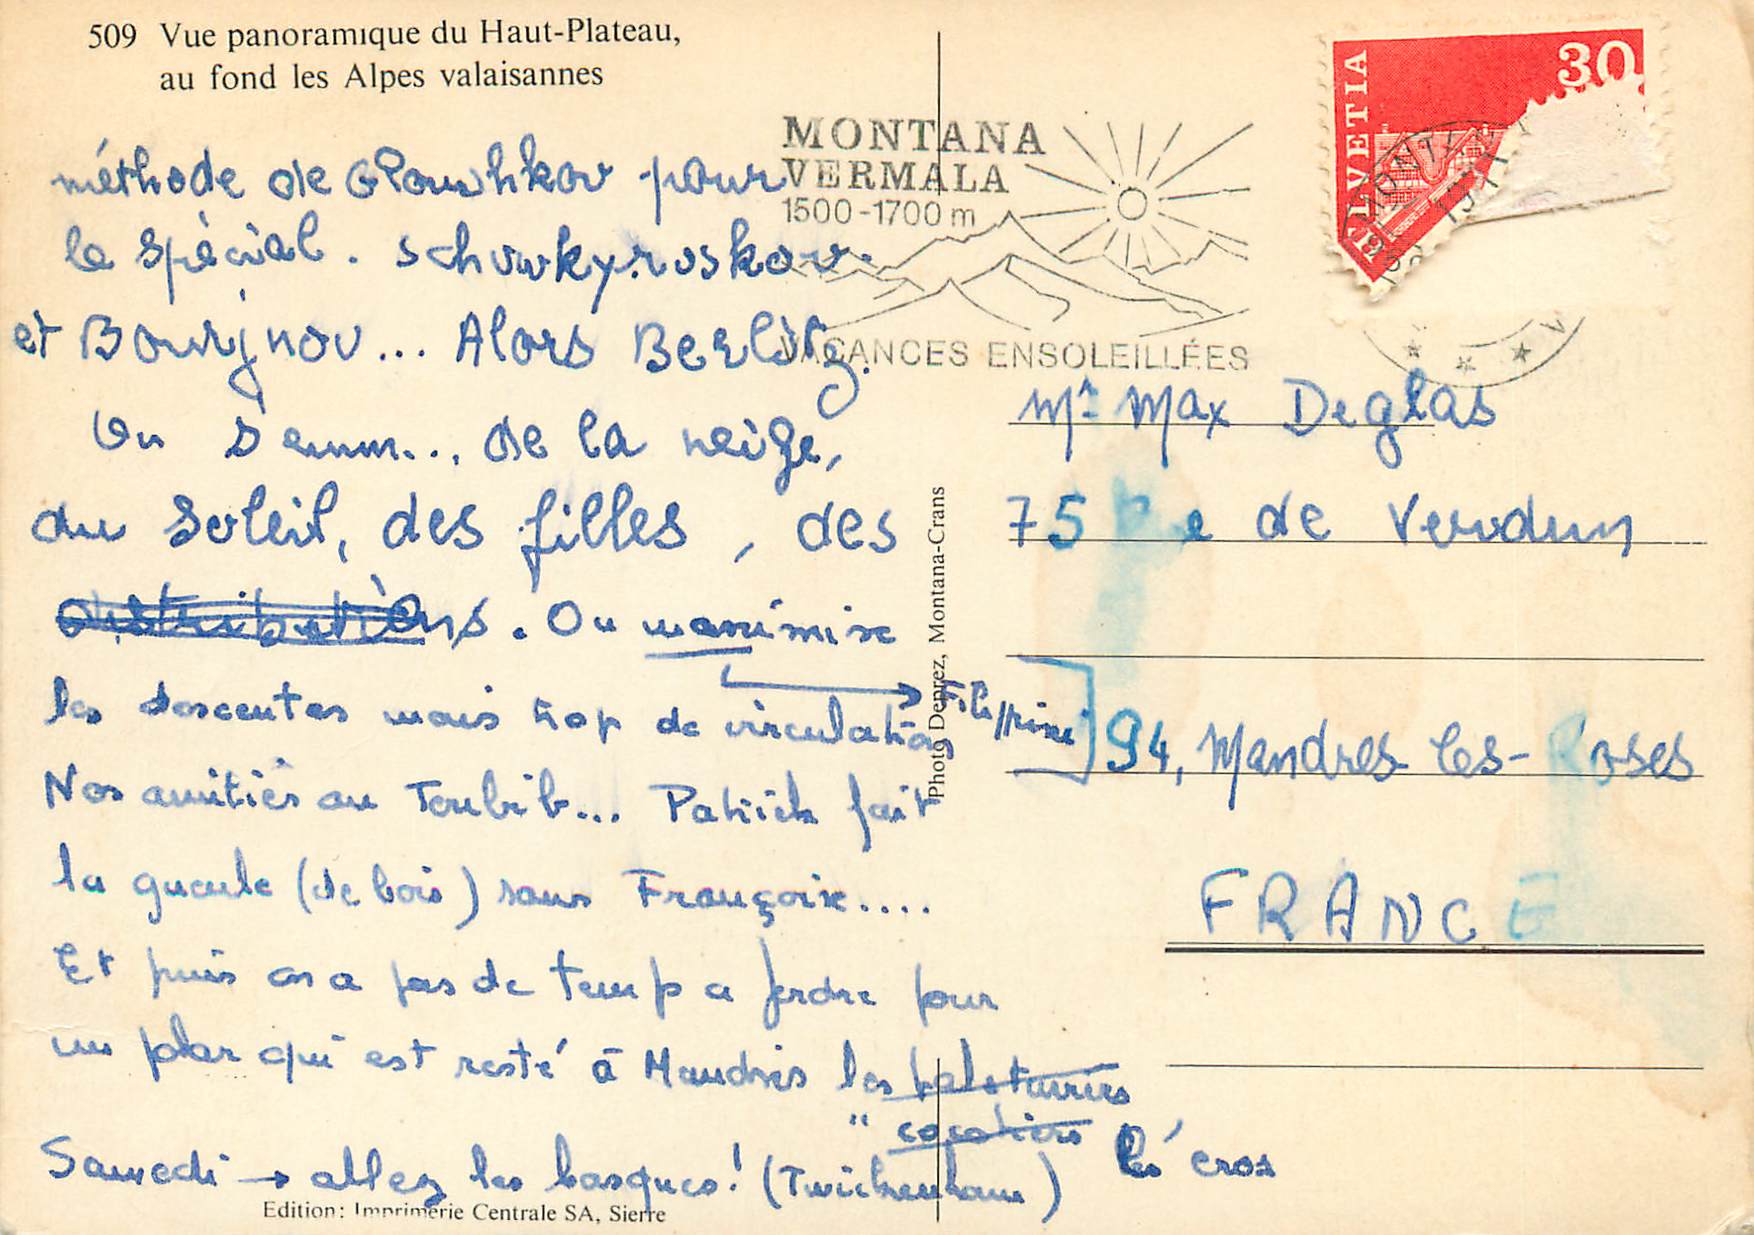 509 Vue panoramique du Haut-Plateau,
au fond les Alpes valaisannes
méthode de Gloushkov pour
le spécial. schuvkyroskov.
et Bourjnov... Alors Berlitz.
On s'emm... de la neige,
du soleil, des filles, des
distributions. On maximise
les descentes mais trop de circulation
Filippini
Nos amitiés au Toubib... Patrick fait
la gueule (de bois) sans Françoise....
Et puis on a pas de temps a perdre pour
un plar qui est resté à Mandres les
" cocotiers les cros
Samedi → allez les basques! (Twickenham)
Edition: Imprimerie Centrale SA, Sierre
Photo Deprez, Montana-Crans
MONTANA
VERMALA
1500-1700 m
VACANCES ENSOLEILLÉES
HELVETIA
30
MONTANA
Mr Max Deglas
75 Rue de Verdun
94, Mandres les-Roses
FRANCE